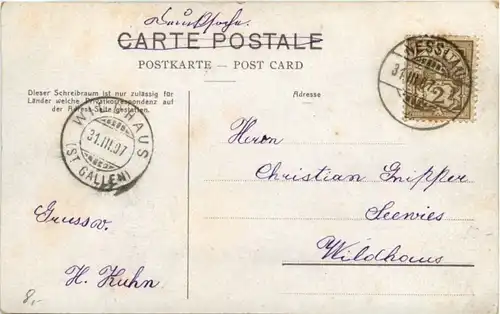 Drucksache.
CARTE POSTALE
POSTKARTE — POST CARD
Dieser Schreibraum ist nur zulässig für
Länder welche Privatkorrespondenz auf
der Adress-Seite gestatten.
Adresse
NESSLAU
31.III.07
2
WILDHAUS
31.III.07
(ST. GALLEN)
Herrn
Christian Gnipper
Seewies
Wildhaus
Gruss v.
H. Kuhn
8.-